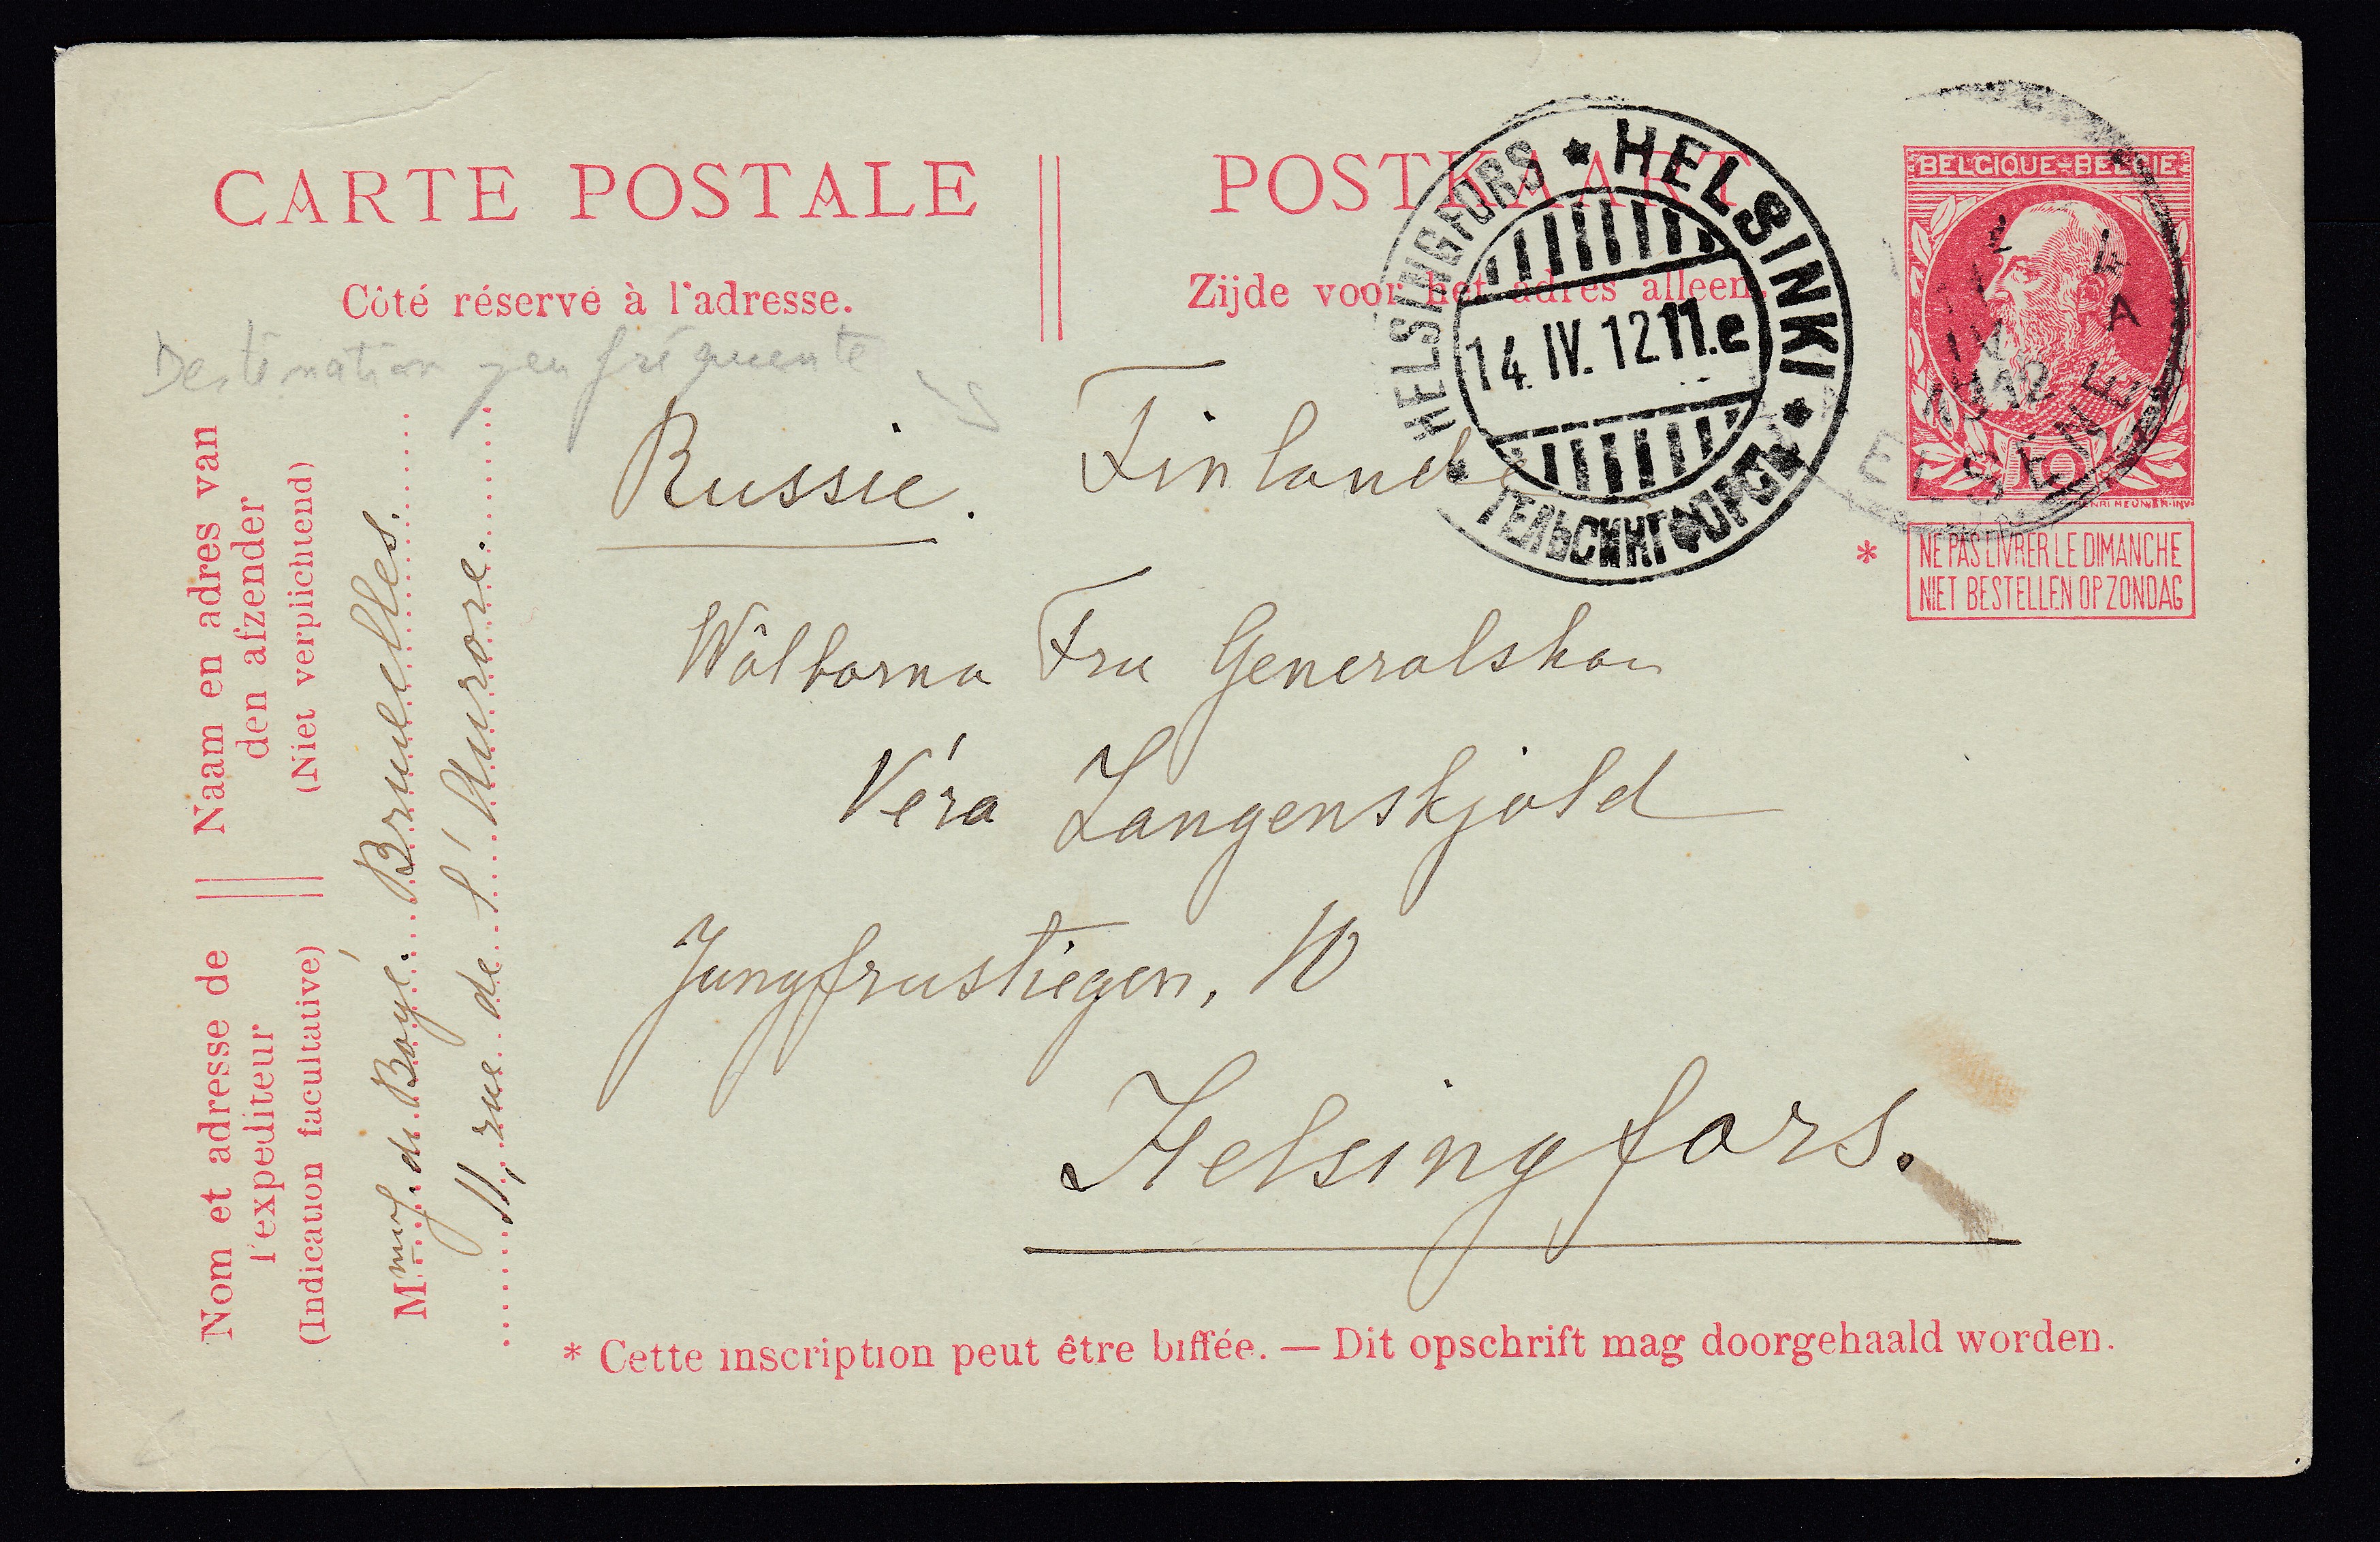 CARTE POSTALE
Côté réservé à l'adresse.
POSTKAART
Zijde voor het adres alleen.
BELGIQUE-BELGIE
10
NE PAS LIVRER LE DIMANCHE
NIET BESTELLEN OP ZONDAG
*
HELSINGFORS * HELSINKI *
ГЕЛЬСИНГФОРСЪ
14. IV. 12 11.e
ELSENE
1912
Destination peu fréquente
Russie. Finlande
Wälborna Fru Generalskan
Véra Langenskjold
Jungfrustiegen, 10
Helsingfors.
Naam en adres van
den afzender
(Niet verplichtend)
Nom et adresse de
l'expéditeur
(Indication facultative)
Mme de Boyé. Bruxelles.
11, rue de l'Aurore.
* Cette inscription peut être biffée. — Dit opschrift mag doorgehaald worden.